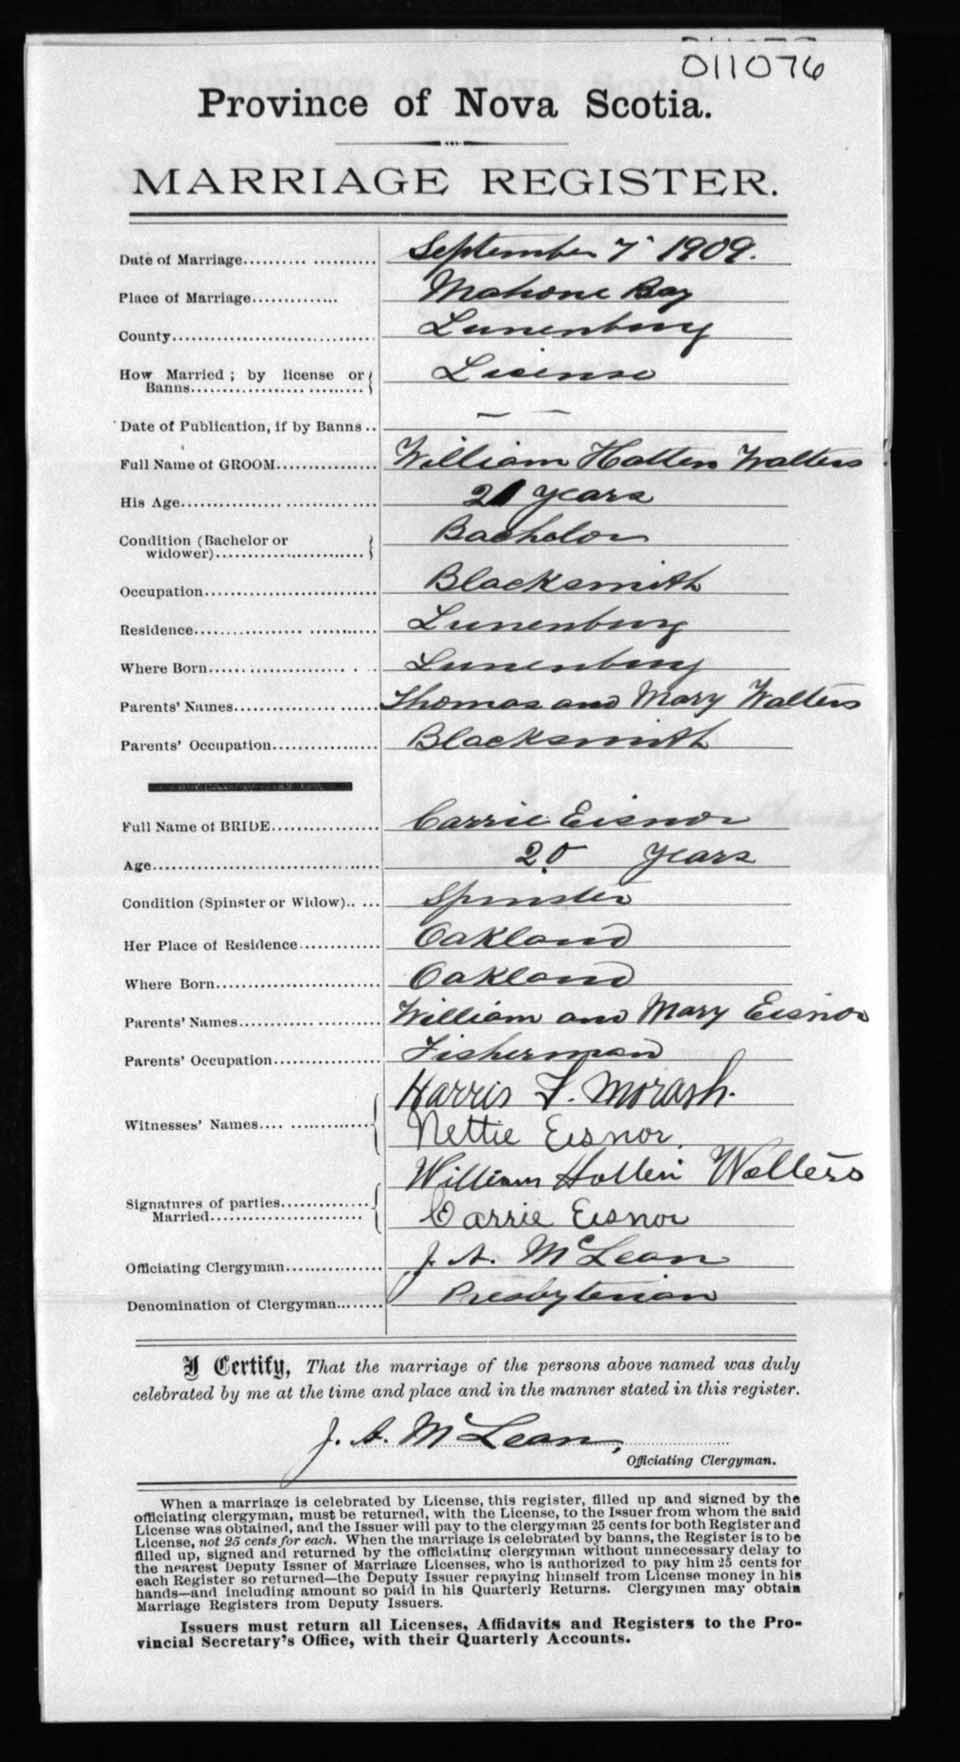 011076
Province of Nova Scotia.
MARRIAGE REGISTER.
Date of Marriage.......... .......... September 7 1909.
Place of Marriage.............. Mahone Bay
County.................................... Lunenburg
How Married ; by license or
Banns.............................. License
Date of Publication, if by Banns .. — —
Full Name of GROOM................. William Hollen Walters
His Age.................................. 21 years
Condition (Bachelor or
widower)........................... Bachelor
Occupation............................... Blacksmith
Residence................................ Lunenburg
Where Born............................ Lunenburg
Parents' Names......................... Thomas and Mary Walters
Parents' Occupation................... Blacksmith
Full Name of BRIDE................... Carrie Eisnor
Age....................................... 20 years
Condition (Spinster or Widow).. ... Spinster
Her Place of Residence............... Oakland
Where Born............................ Oakland
Parents' Names......................... William and Mary Eisnor
Parents' Occupation................... Fisherman
Witnesses' Names.... ................ Harris L. Morash.
Nettie Eisnor.
William Hollen Walters
Signatures of parties.............
Married........................ Carrie Eisnor
Officiating Clergyman................ J. A. McLean
Denomination of Clergyman........ Presbyterian
I Certify, That the marriage of the persons above named was duly
celebrated by me at the time and place and in the manner stated in this register.
J. A. McLean,
Officiating Clergyman.
When a marriage is celebrated by License, this register, filled up and signed by the
officiating clergyman, must be returned, with the License, to the Issuer from whom the said
License was obtained, and the Issuer will pay to the clergyman 25 cents for both Register and
License, not 25 cents for each. When the marriage is celebrated by banns, the Register is to be
filled up, signed and returned by the officiating clergyman without unnecessary delay to
the nearest Deputy Issuer of Marriage Licenses, who is authorized to pay him 25 cents for
each Register so returned—the Deputy Issuer repaying himself from License money in his
hands—and including amount so paid in his Quarterly Returns. Clergymen may obtain
Marriage Registers from Deputy Issuers.
Issuers must return all Licenses, Affidavits and Registers to the Pro-
vincial Secretary's Office, with their Quarterly Accounts.